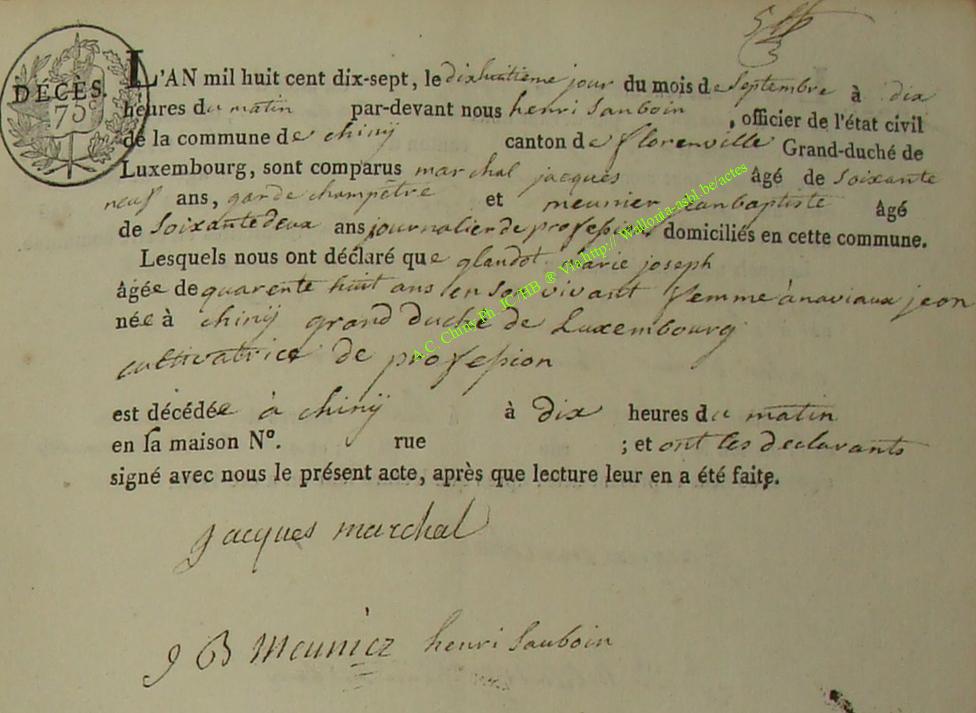 DÉCÈS.
75 c
L'AN mil huit cent dix-sept, le dixhuitieme jour du mois de Septembre à dix
heures du matin par-devant nous henri Sauboin , officier de l'état civil
de la commune de chinÿ canton de florenville Grand-duché de
Luxembourg, sont comparus marchal jacques âgé de Soixante
neuf ans, garde champetre et meunier jean baptiste âgé
de Soixante deux ans journalier de profession. domiciliés en cette commune.
Lesquels nous ont déclaré que glaudot marie joseph
âgée de quarente huit ans en son vivant femme à naviaux jean
née à chinÿ grand duché de Luxembourg
cultivatrice de profession
est décédée à chinÿ à dix heures du matin
en sa maison N°. rue ; et ont les declarants
signé avec nous le présent acte, après que lecture leur en a été faite.
jacques marchal
J B Meunier henri Sauboin
A.C. Chiny Ph. JC/HB ® Via http:// Wallonia-asbl.be/actes